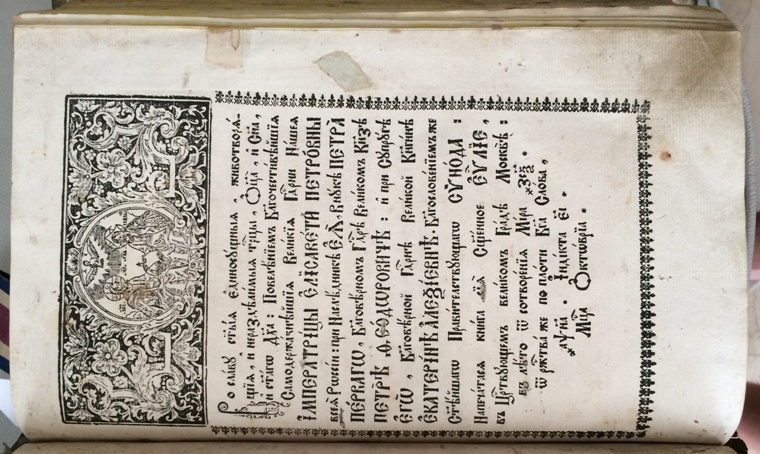 Во славу стыѧ единосущныѧ, животворѧ-
щіѧ, и нераздѣлимыѧ трцы, Оца, и Сна,
и стагѡ Дха: Повелѣніемъ Благочестивѣйшіѧ
Самодержавнѣйшіѧ Великіѧ Гдарни Нашеѧ
ІМПЕРАТРІЦЫ ЕЛІСАВЕТИ ПЕТРОВНЫ
всеѧ Рѡссіи: при Наслѣдникѣ еѧ, Внукѣ ПЕТРА
ПЕРВАГѠ, Благовѣрномъ Гдрѣ Великомъ Кнзѣ
ПЕТРѢ ѲЕОДѠРОВИЧѢ: и при Супругѣ
егѡ, Благовѣрной Гдрнѣ Великой Кнгинѣ
ЕКАТЕРІНѢ АЛЕѮІЕВНѢ: Благословеніемъ же
Стѣйшагѡ Правителствующагѡ СУНОДА:
Напечатасѧ книга сіѧ Сщенное ЕУЛІЕ,
въ Цртвующемъ великомъ Градѣ Москвѣ:
въ лѣто ѿ сотворенія Мира ҂зсн҃г,
ѿ ржтва же по плоти Бга Слова,
҂аѱмд. Індікта иі.
Мца Октовріа.